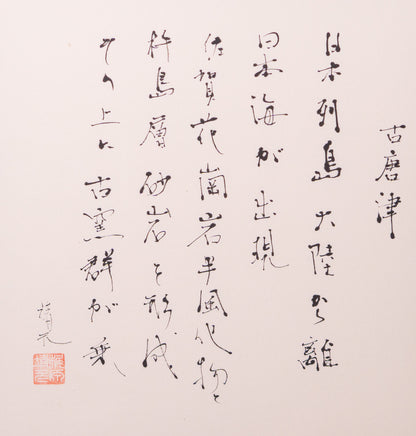 古唐津
日本列島大陸から離
日本海が出現
佐賀花崗岩半風化物と
杵島層砂岩を形成
その上に古窯群が乗